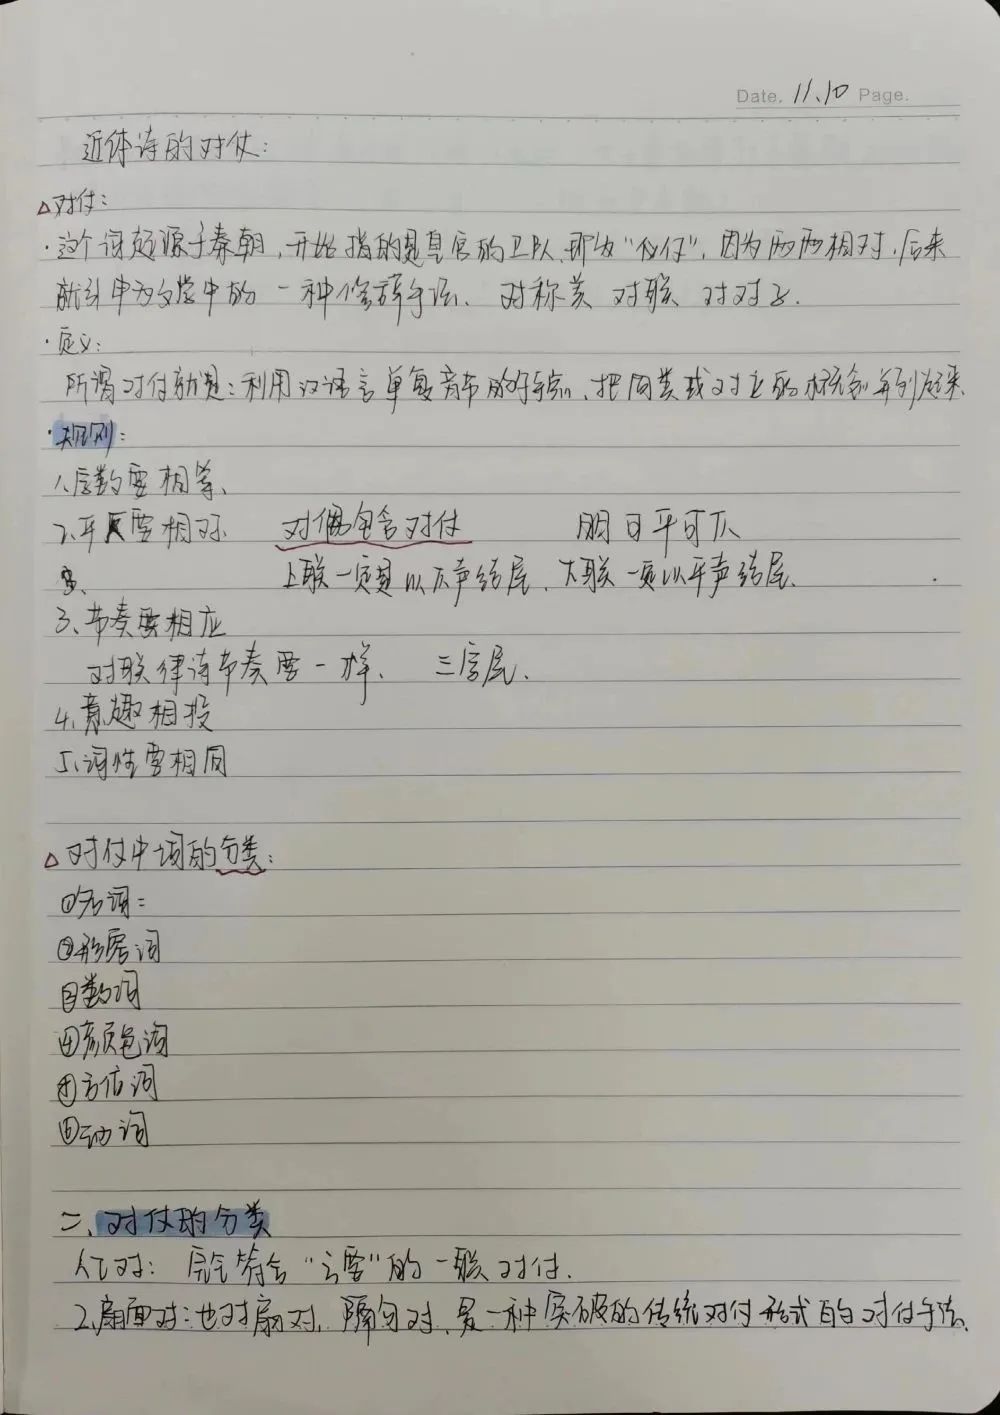 Date. 11.10 Page.
近体诗的对仗:
△对付:
·这个词起源于秦朝,开始指的是皇宫的卫队,那为"仪仗",因为两两相对,后来
就引申为文学中的一种修辞手法、对称美 对联 对对子.
·定义:
所谓对付就是:利用汉语言单复音节的特点、把同类或对立的概念并列起来.
·规则:
1、字数要相等、
2、平仄要相对 对偶包含对付 阴日平可仄
上联一定是以仄声结尾、下联一定以平声结尾.
3、节奏要相应
对联律诗节奏要一样、 三字尾.
4、意趣相投
5、词性要相同
△对仗中词的分类:
①名词:
②形容词
③数词
④颜色词
⑤方位词
⑥动词
二、对仗的分类
1、工对: 完全符合"六要"的一联对付.
2、扇面对:也对扇对,隔句对,是一种突破的传统对付形式的对付手法.